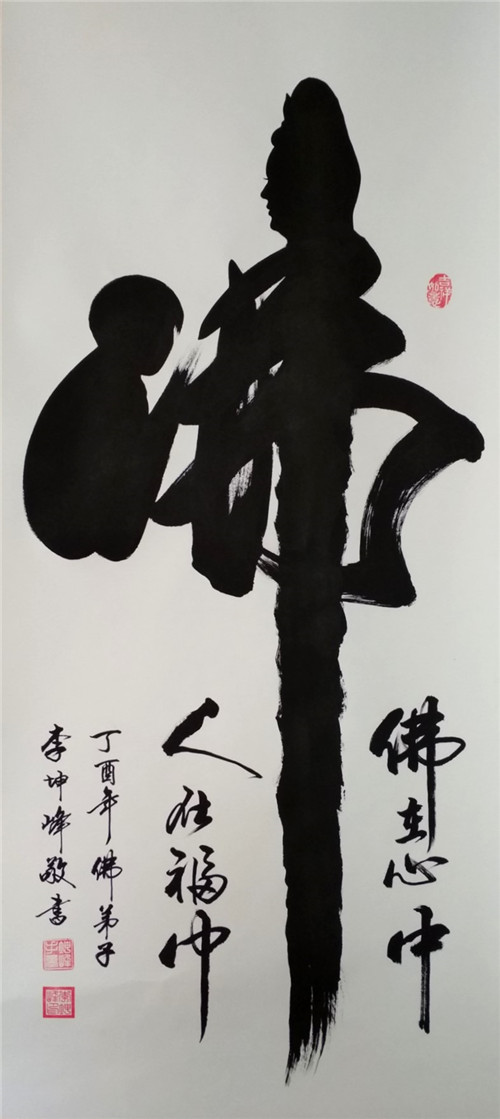 佛
佛在心中
人在福中
丁酉年佛弟子
李坤峰敬書